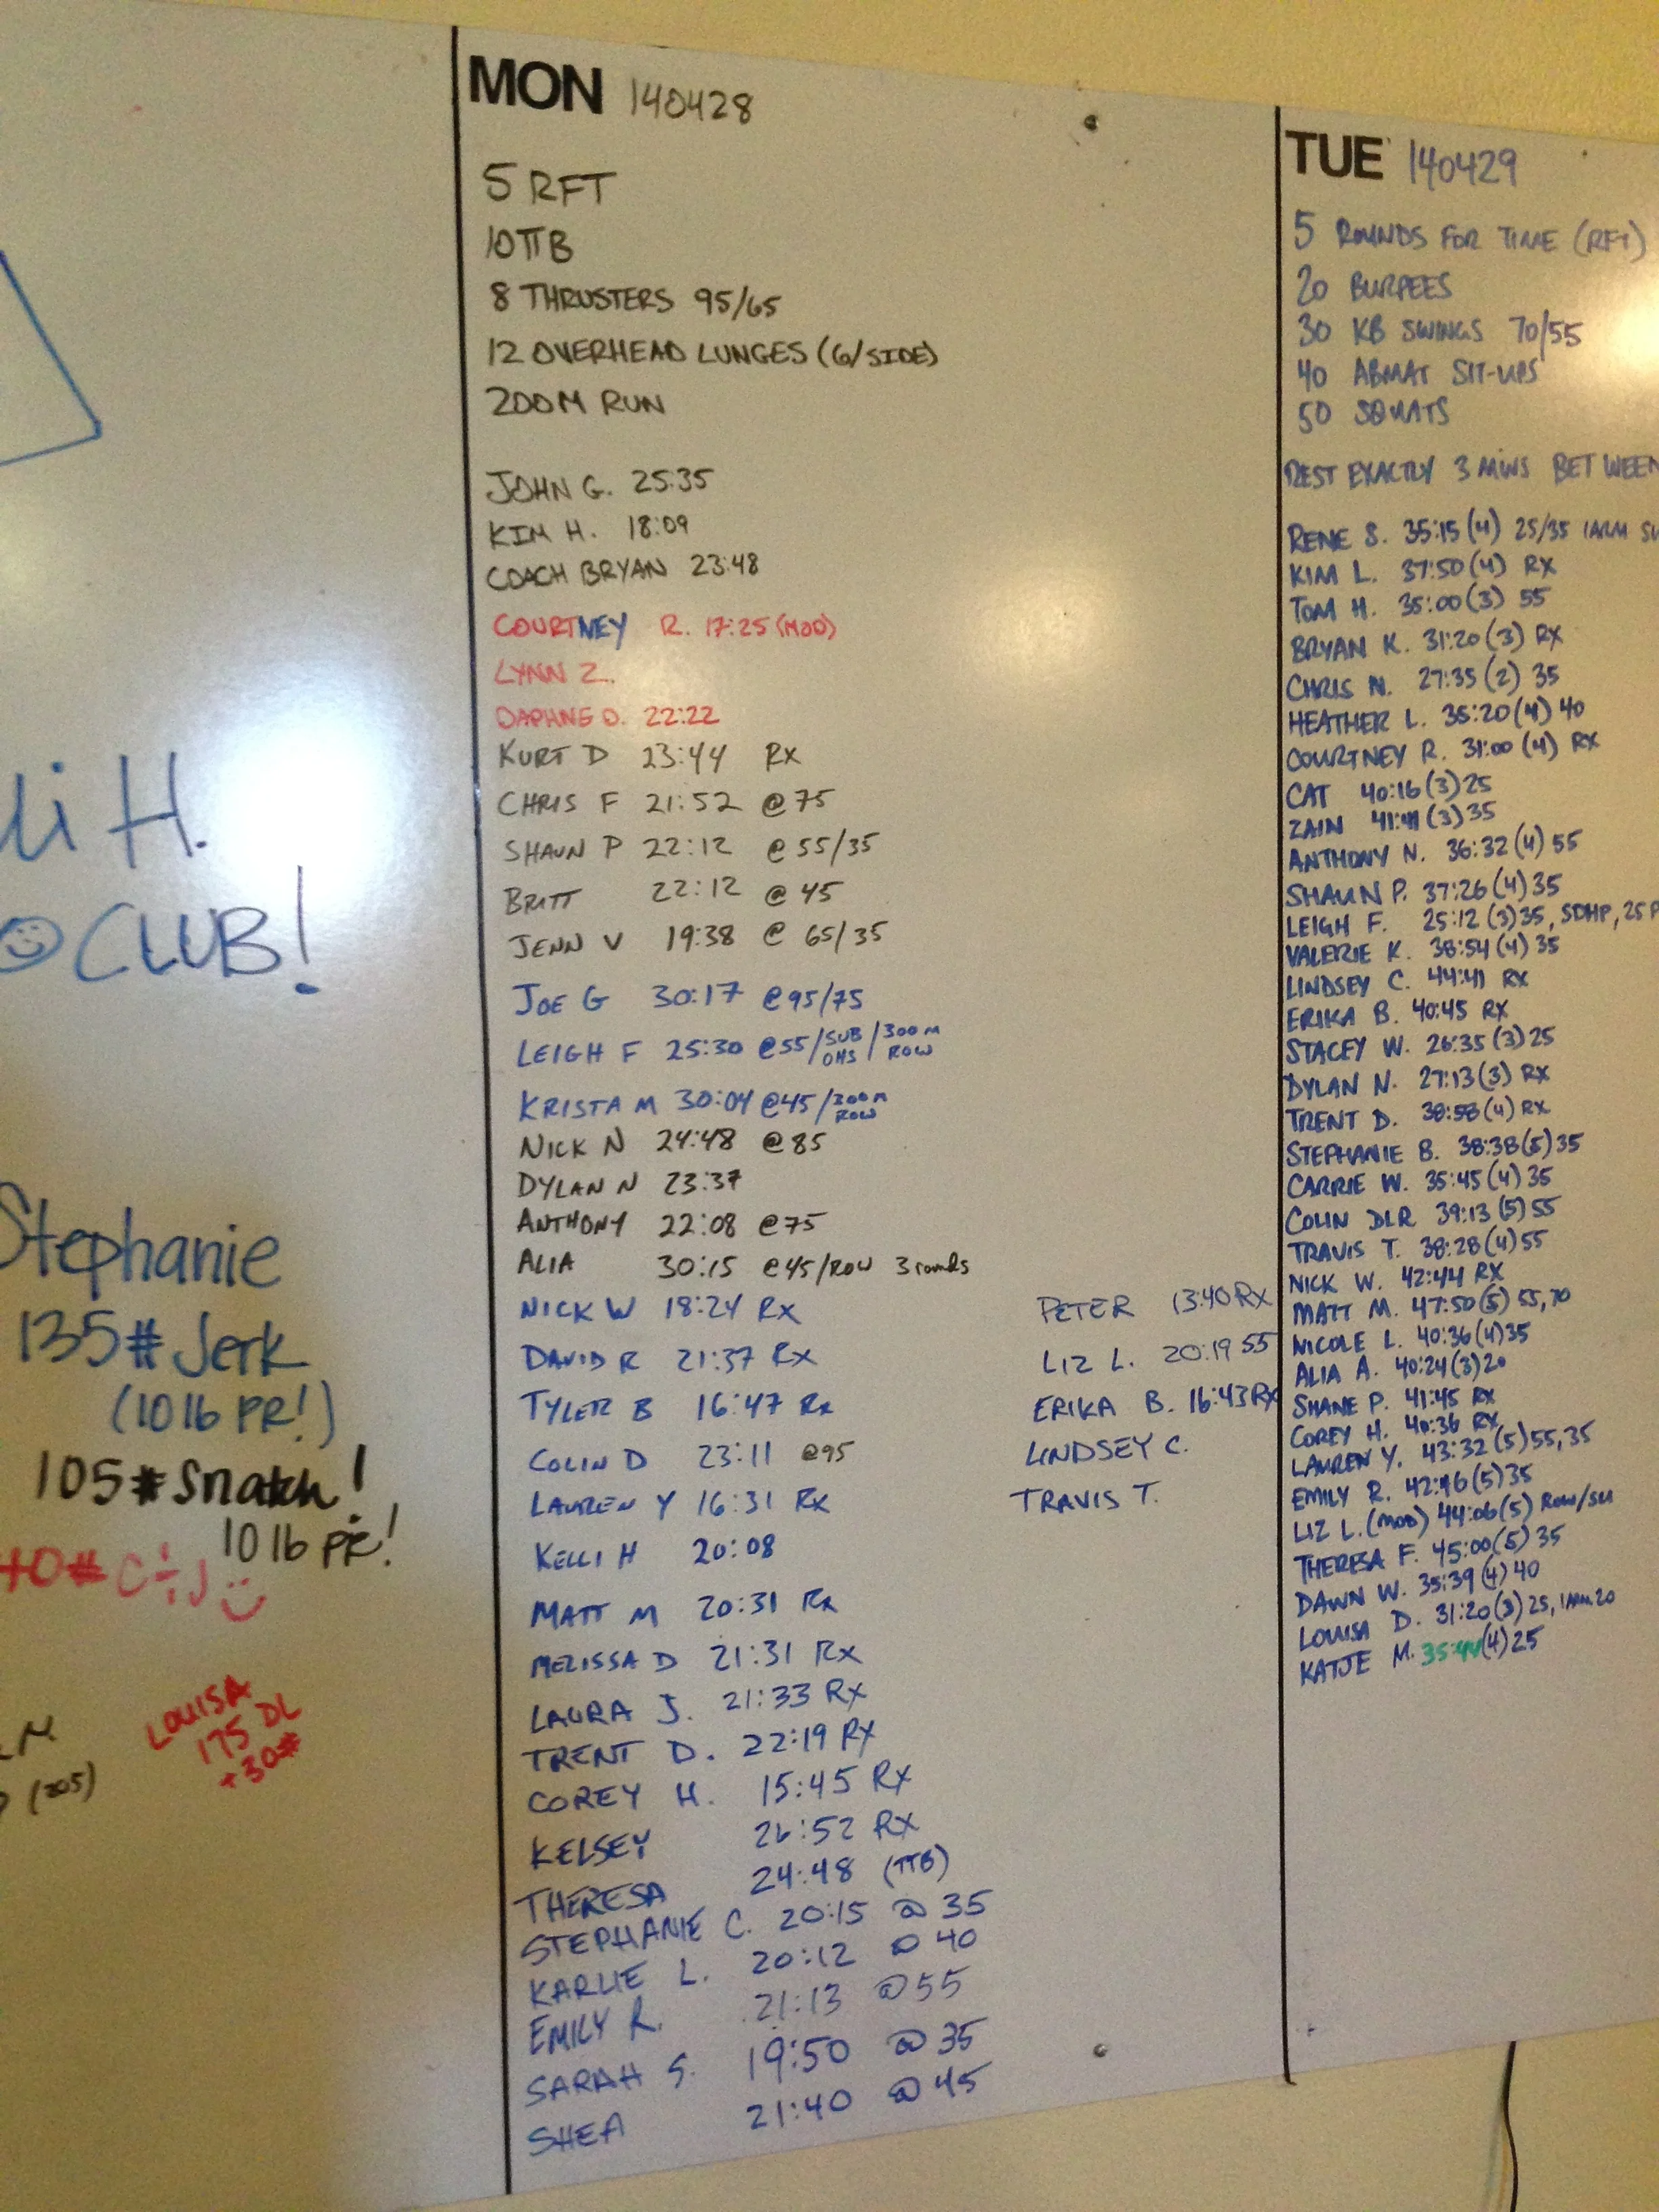 li H.
CLUB!
Stephanie
135# Jerk
(10 lb PR!)
105# Snatch!
10 lb PR!
40# C+J
LOUISA
175 DL
+30#
(205)
MON 140428
5 RFT
10 TTB
8 THRUSTERS 95/65
12 OVERHEAD LUNGES (6/SIDE)
200M RUN
JOHN G. 25:35
KIM H. 18:09
COACH BRYAN 23:48
COURTNEY R. 17:25 (MOD)
LYNN Z.
DAPHNE D. 22:22
KURT D 23:44 RX
CHRIS F 21:52 @ 75
SHAUN P 22:12 @ 55/35
BRITT 22:12 @ 45
JENN V 19:38 @ 65/35
JOE G 30:17 @95/75
LEIGH F 25:30 @55/SUB OHS/300 M ROW
KRISTA M 30:04 @45/300M ROW
NICK N 24:48 @85
DYLAN N 23:37
ANTHONY 22:08 @75
ALIA 30:15 @45/ROW 3 rounds
NICK W 18:24 RX
DAVID R 21:37 RX
TYLER B 16:47 RX
COLIN D 23:11 @95
LAUREN Y 16:31 RX
KELLI H 20:08
MATT M 20:31 RX
MELISSA D 21:31 RX
LAURA J. 21:33 RX
TRENT D. 22:19 RX
COREY H. 15:45 RX
KELSEY 26:52 RX
THERESA 24:48 (TTB)
STEPHANIE C. 20:15 @ 35
KARLIE L. 20:12 @ 40
EMILY R. 21:13 @ 55
SARAH S. 19:50 @ 35
SHEA 21:40 @ 45
PETER 13:40 RX
LIZ L. 20:19 55
ERIKA B. 16:43 RX
LINDSEY C.
TRAVIS T.
TUE 140429
5 ROUNDS FOR TIME (RFT)
20 BURPEES
30 KB SWINGS 70/55
40 ABMAT SIT-UPS
50 SQUATS
REST EXACTLY 3 MINS BETWEEN
RENE S. 35:15 (4) 25/35 1ARM SW
KIM L. 37:50 (4) RX
TOM H. 35:00 (3) 55
BRYAN K. 31:20 (3) RX
CHRIS N. 27:35 (2) 35
HEATHER L. 35:20 (4) 40
COURTNEY R. 31:00 (4) RX
CAT 40:16 (3) 25
ZAIN 41:41 (3) 35
ANTHONY N. 36:32 (4) 55
SHAUN P. 37:26 (4) 35
LEIGH F. 25:12 (3) 35, SDHP, 25 P
VALERIE K. 38:54 (4) 35
LINDSEY C. 44:41 RX
ERIKA B. 40:45 RX
STACEY W. 26:35 (3) 25
DYLAN N. 27:13 (3) RX
TRENT D. 38:58 (4) RX
STEPHANIE B. 38:38 (5) 35
CARRIE W. 35:45 (4) 35
COLIN DLR 39:13 (5) 55
TRAVIS T. 38:28 (4) 55
NICK W. 42:44 RX
MATT M. 47:50 (5) 55,70
NICOLE L. 40:36 (4) 35
ALIA A. 40:24 (3) 20
SHANE P. 41:45 RX
COREY H. 40:36 RX
LAUREN Y. 43:32 (5) 55,35
EMILY R. 42:46 (5) 35
LIZ L. (MOD) 44:06 (5) ROW/SU
THERESA F. 45:00 (5) 35
DAWN W. 35:39 (4) 40
LOUISA D. 31:20 (3) 25, 1ARM 20
KATJE M. 35:44 (4) 25